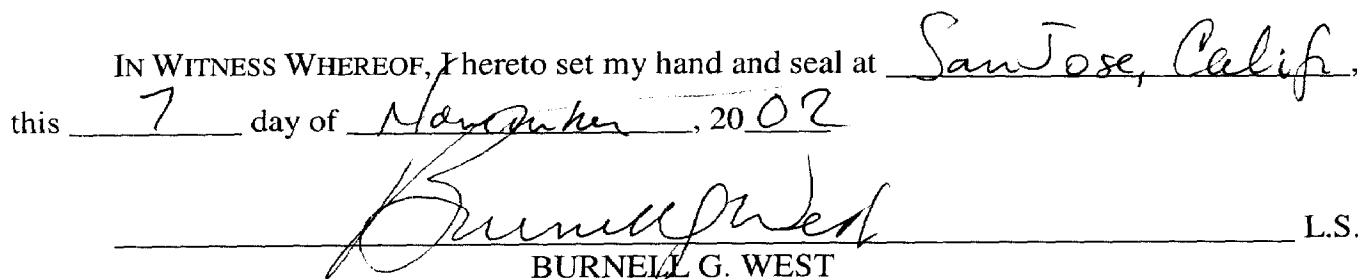 IN WITNESS WHEREOF, I hereto set my hand and seal at San Jose, Calif,
this 7 day of November, 2002
Burnell G West L.S.
BURNELL G. WEST